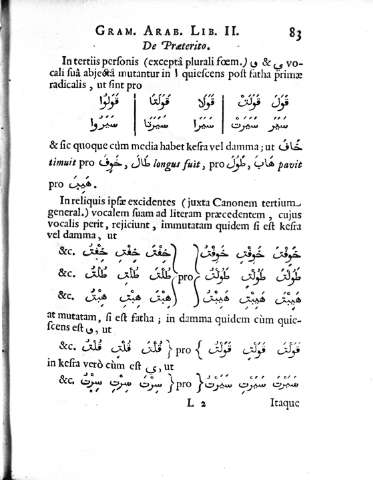 GRAM. ARAB. LIB. II. 83
De Præterito.
In tertiis personis (exceptâ plurali fœm.) و & ي vo-
cali suâ abjectâ mutantur in ا quiescens post fatha primæ
radicalis, ut sint pro
قَوَلَ قَوَلَتْ قَوَلَا قَوَلَتَا قَوَلُوا
سَيَرَ سَيَرَتْ سَيَرَا سَيَرَتَا سَيَرُوا
& sic quoque cùm media habet kesra vel damma; ut خَافَ
timuit pro خَوِفَ, طَالَ longus fuit, pro طَوُلَ, هَابَ pavit
pro هَيِبَ.
In reliquis ipsæ excidentes (juxta Canonem tertium
general.) vocalem suam ad literam præcedentem, cujus
vocalis perit, rejiciunt, immutatam quidem si est kesra
vel damma, ut
&c. خِفْتُ خِفْتِ خِفْتَ pro خَوِفْتَ خَوِفْتِ خَوِفْتُ
&c. طُلْتُ طُلْتِ طُلْتَ pro طَوُلْتَ طَوُلْتِ طَوُلْتُ
&c. هِبْتُ هِبْتِ هِبْتَ pro هَيِبْتَ هَيِبْتِ هَيِبْتُ
at mutatam, si est fatha; in damma quidem cùm quie-
scens est و, ut
&c. قُلْتُ قُلْتِ قُلْتَ pro قَوَلْتَ قَوَلْتِ قَوَلْتُ
in kesra verò cùm est ي, ut
&c. سِرْتُ سِرْتِ سِرْتَ pro سَيَرْتَ سَيَرْتِ سَيَرْتُ
L 2 Itaque